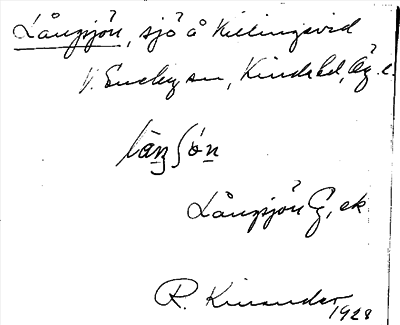 Långsjön, sjö å Killingsvid
V. Eneby sn, Kinda hd, Ög. l.
låŋʃön
Långsjön G, ek
R. Kinander
1928